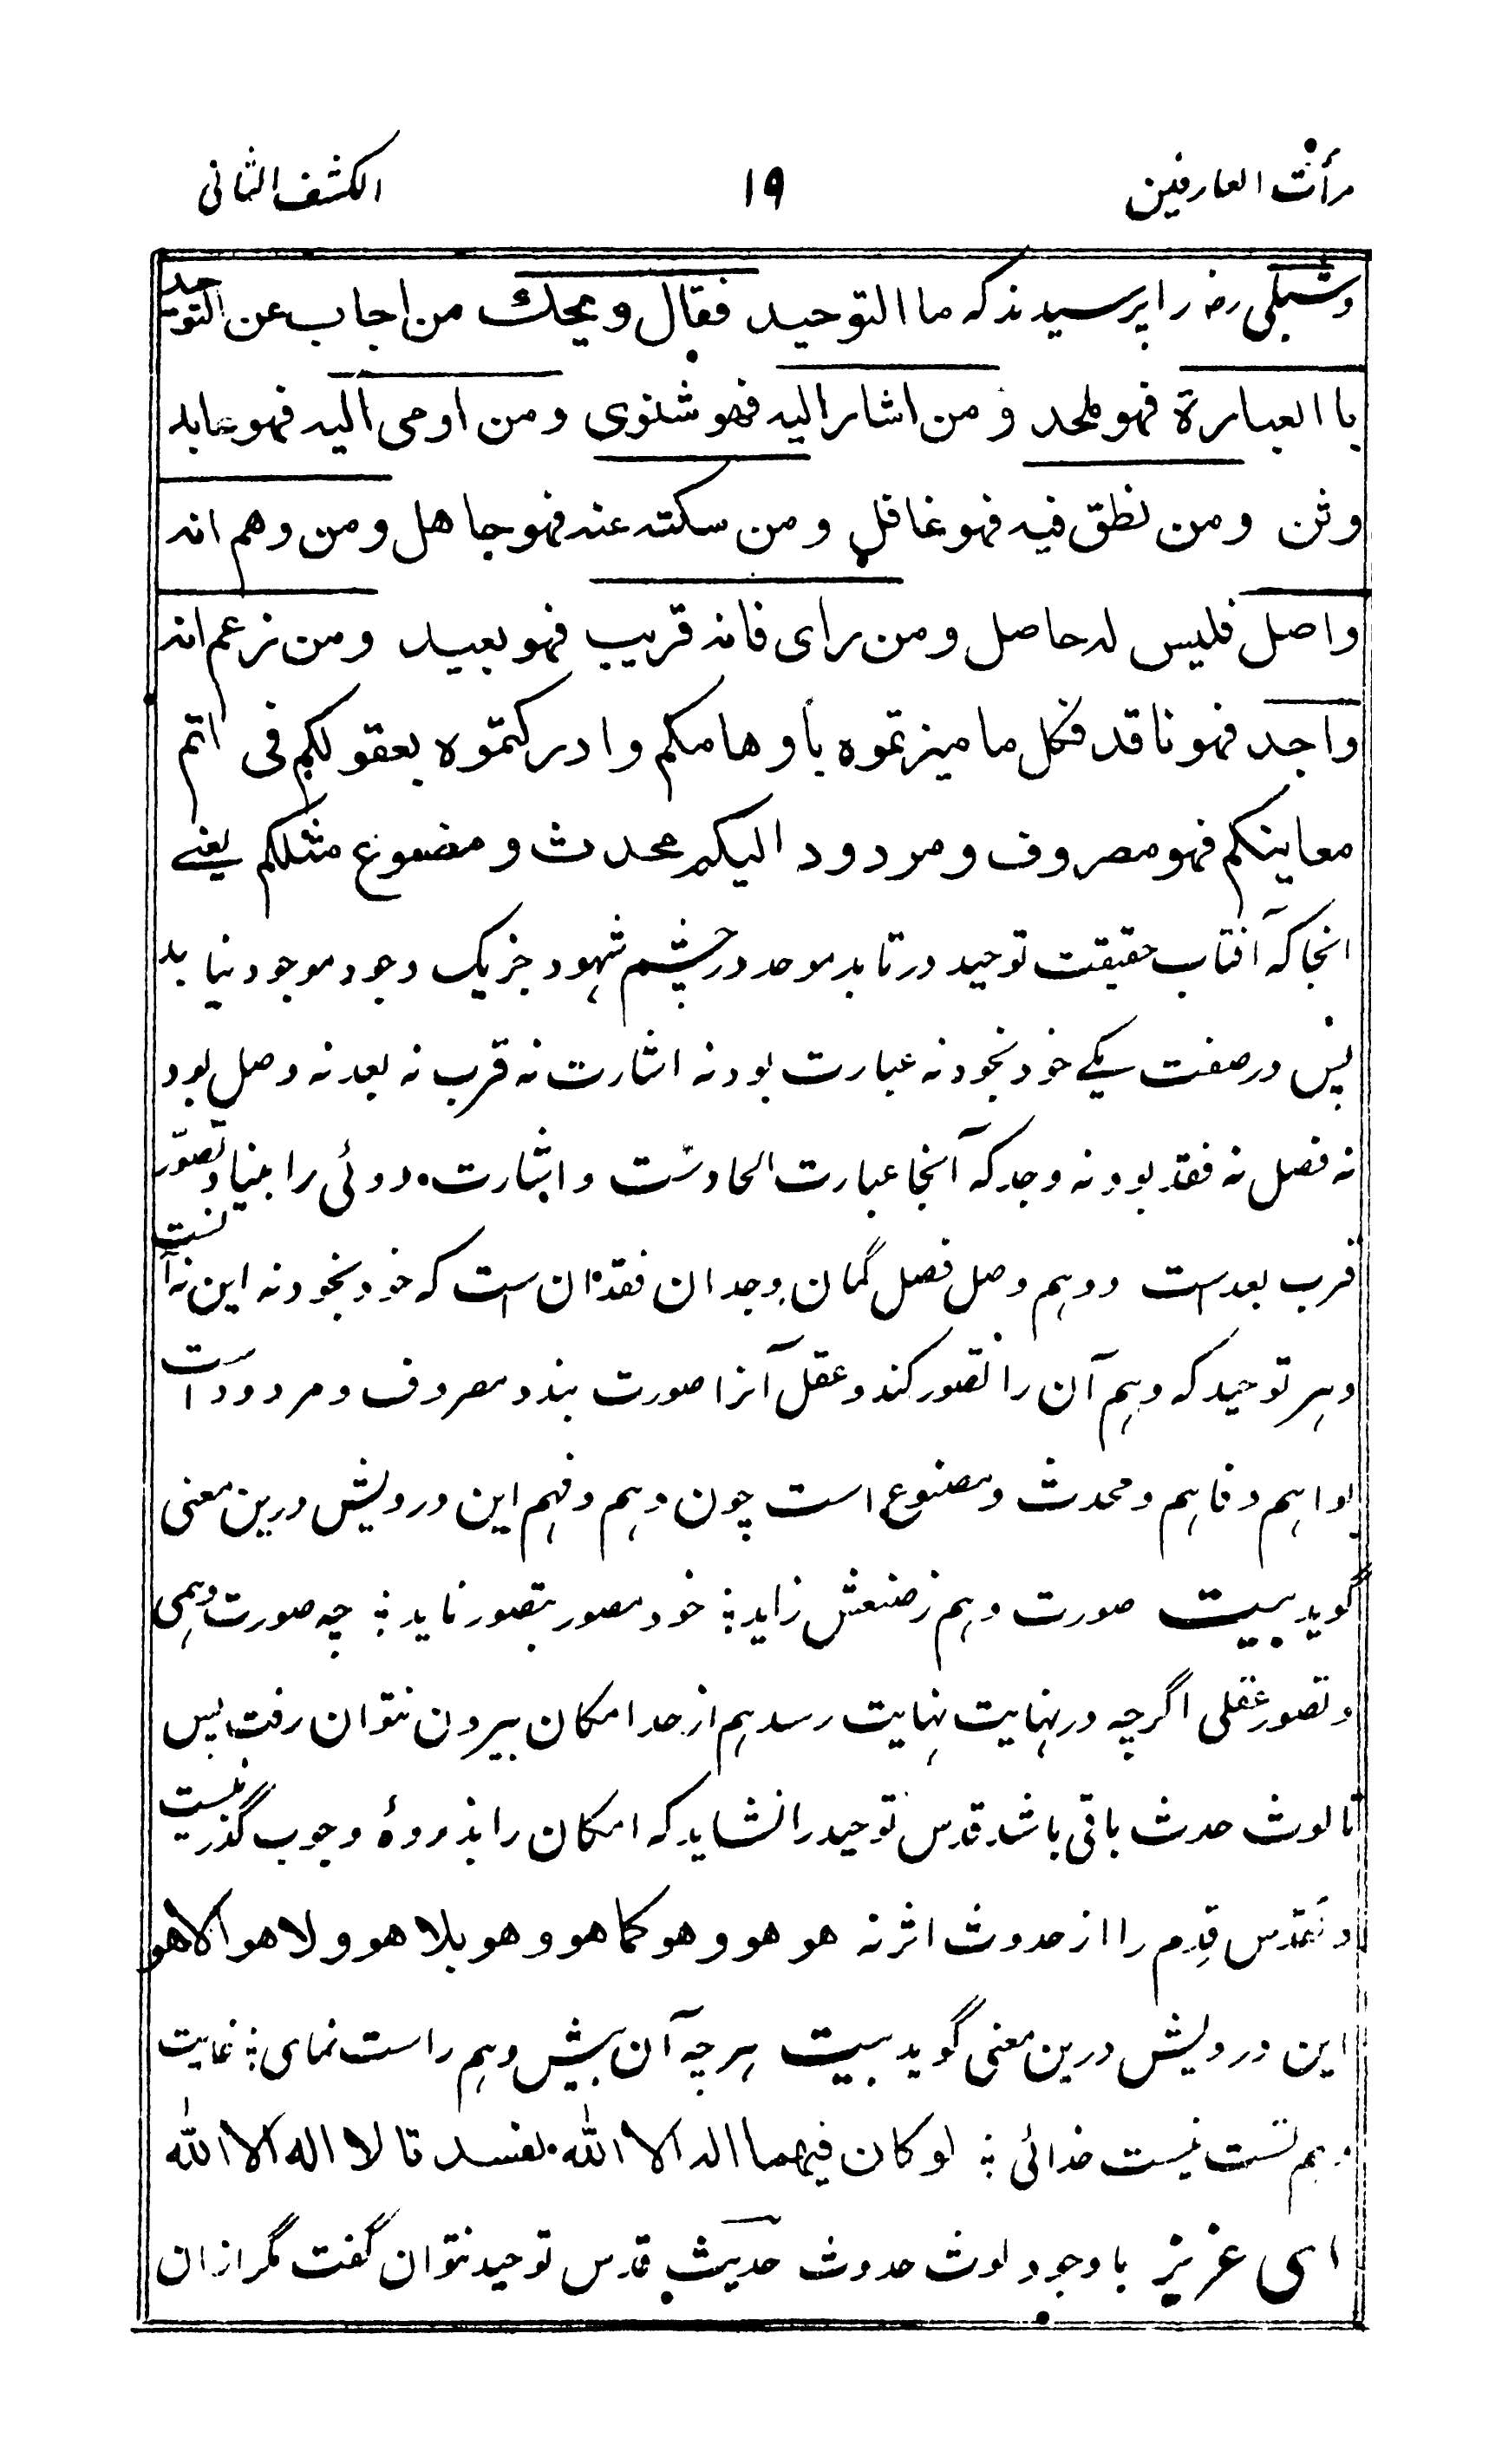 مرأت العارفین ۱۹ الکشف الثانی
وشبلی رضـ را پرسیدند که ما التوحید فقال ویحک من اجاب عن التوحید
با العبارة فهو ملحد و من اشار الیه فهو شنوی و من اومی الیه فهو عابد
وثن و من نطق فیه فهو غافل و من سکته عنه فهو جاهل و من وهم انه
واصل فلیس له حاصل و من رای فانه قریب فهو بعید و من زعم انه
واجد فهو ناقد فکل ما میزتموه بأوهامکم وادرکتموه بعقولکم فی اتم
معاینکم فهو مصروف و مردود الیکم محدث و مضموع مثلکم یعنے
انجا که آفتاب حقیقت توحید در تابد موحد در چشم شهود جز یک وجود موجود نیابد
پس در صفت یکے خود بخود نه عبارت بود نه اشارت نه قرب نه بعد نه وصل بود
نه فصل نه فقد بود نه وجد که آنجا عبارت الحادست و اشارت دوئی را بنیاد و تصور
قرب بعد است و وهم وصل فصل گمان وجدان فقدان است که خود بخود نه این نه آنست
و هر توحید که وهم آن را تصور کند و عقل آنرا صورت بندد مصروف و مردود است
بواهم و فاهم و محدث و مصنوع است چون وهم و فهم این درویش درین معنی
گوید بیت صورت وهم ز صنعش زاید ؛ خود مصور بتصور ناید ؛ چه صورت وهمی
و تصور عقلی اگرچه در نهایت نهایت رسد هم از حد امکان بیرون نتوان رفت پس
تا لوث حدث باقی باشد قدس توحید را نشاید که امکان را بذروهٔ وجوب گذر نیست
و تقدس قدم را از حدوث اثر نه هو هو و هو کما هو و هو بلا هو و لا هو الا هو
این درویش درین معنی گوید بیت هرچه آن پیش وهم راست نمای ؛ غایت
وهم تست نیست خدائی ؛ لو کان فیهما اله الا الله لفسدتا لا اله الا الله
ای عزیز با وجود لوث حدوث حدیث قدس توحید نتوان گفت مگر ازان